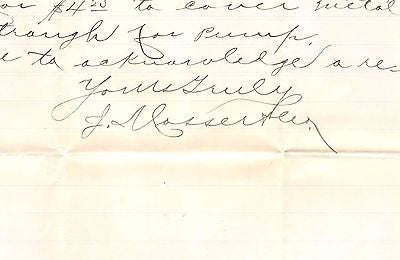 or $4.25 to cover metal
trough for pump.
e to acknowledge a re-
Yours Truly
J.